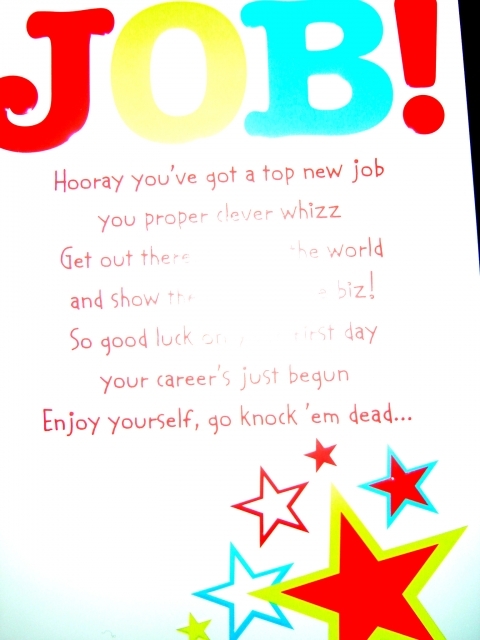 JOB!
Hooray you've got a top new job
you proper clever whizz
Get out there the world
and show the biz!
So good luck on first day
your career's just begun
Enjoy yourself, go knock 'em dead...